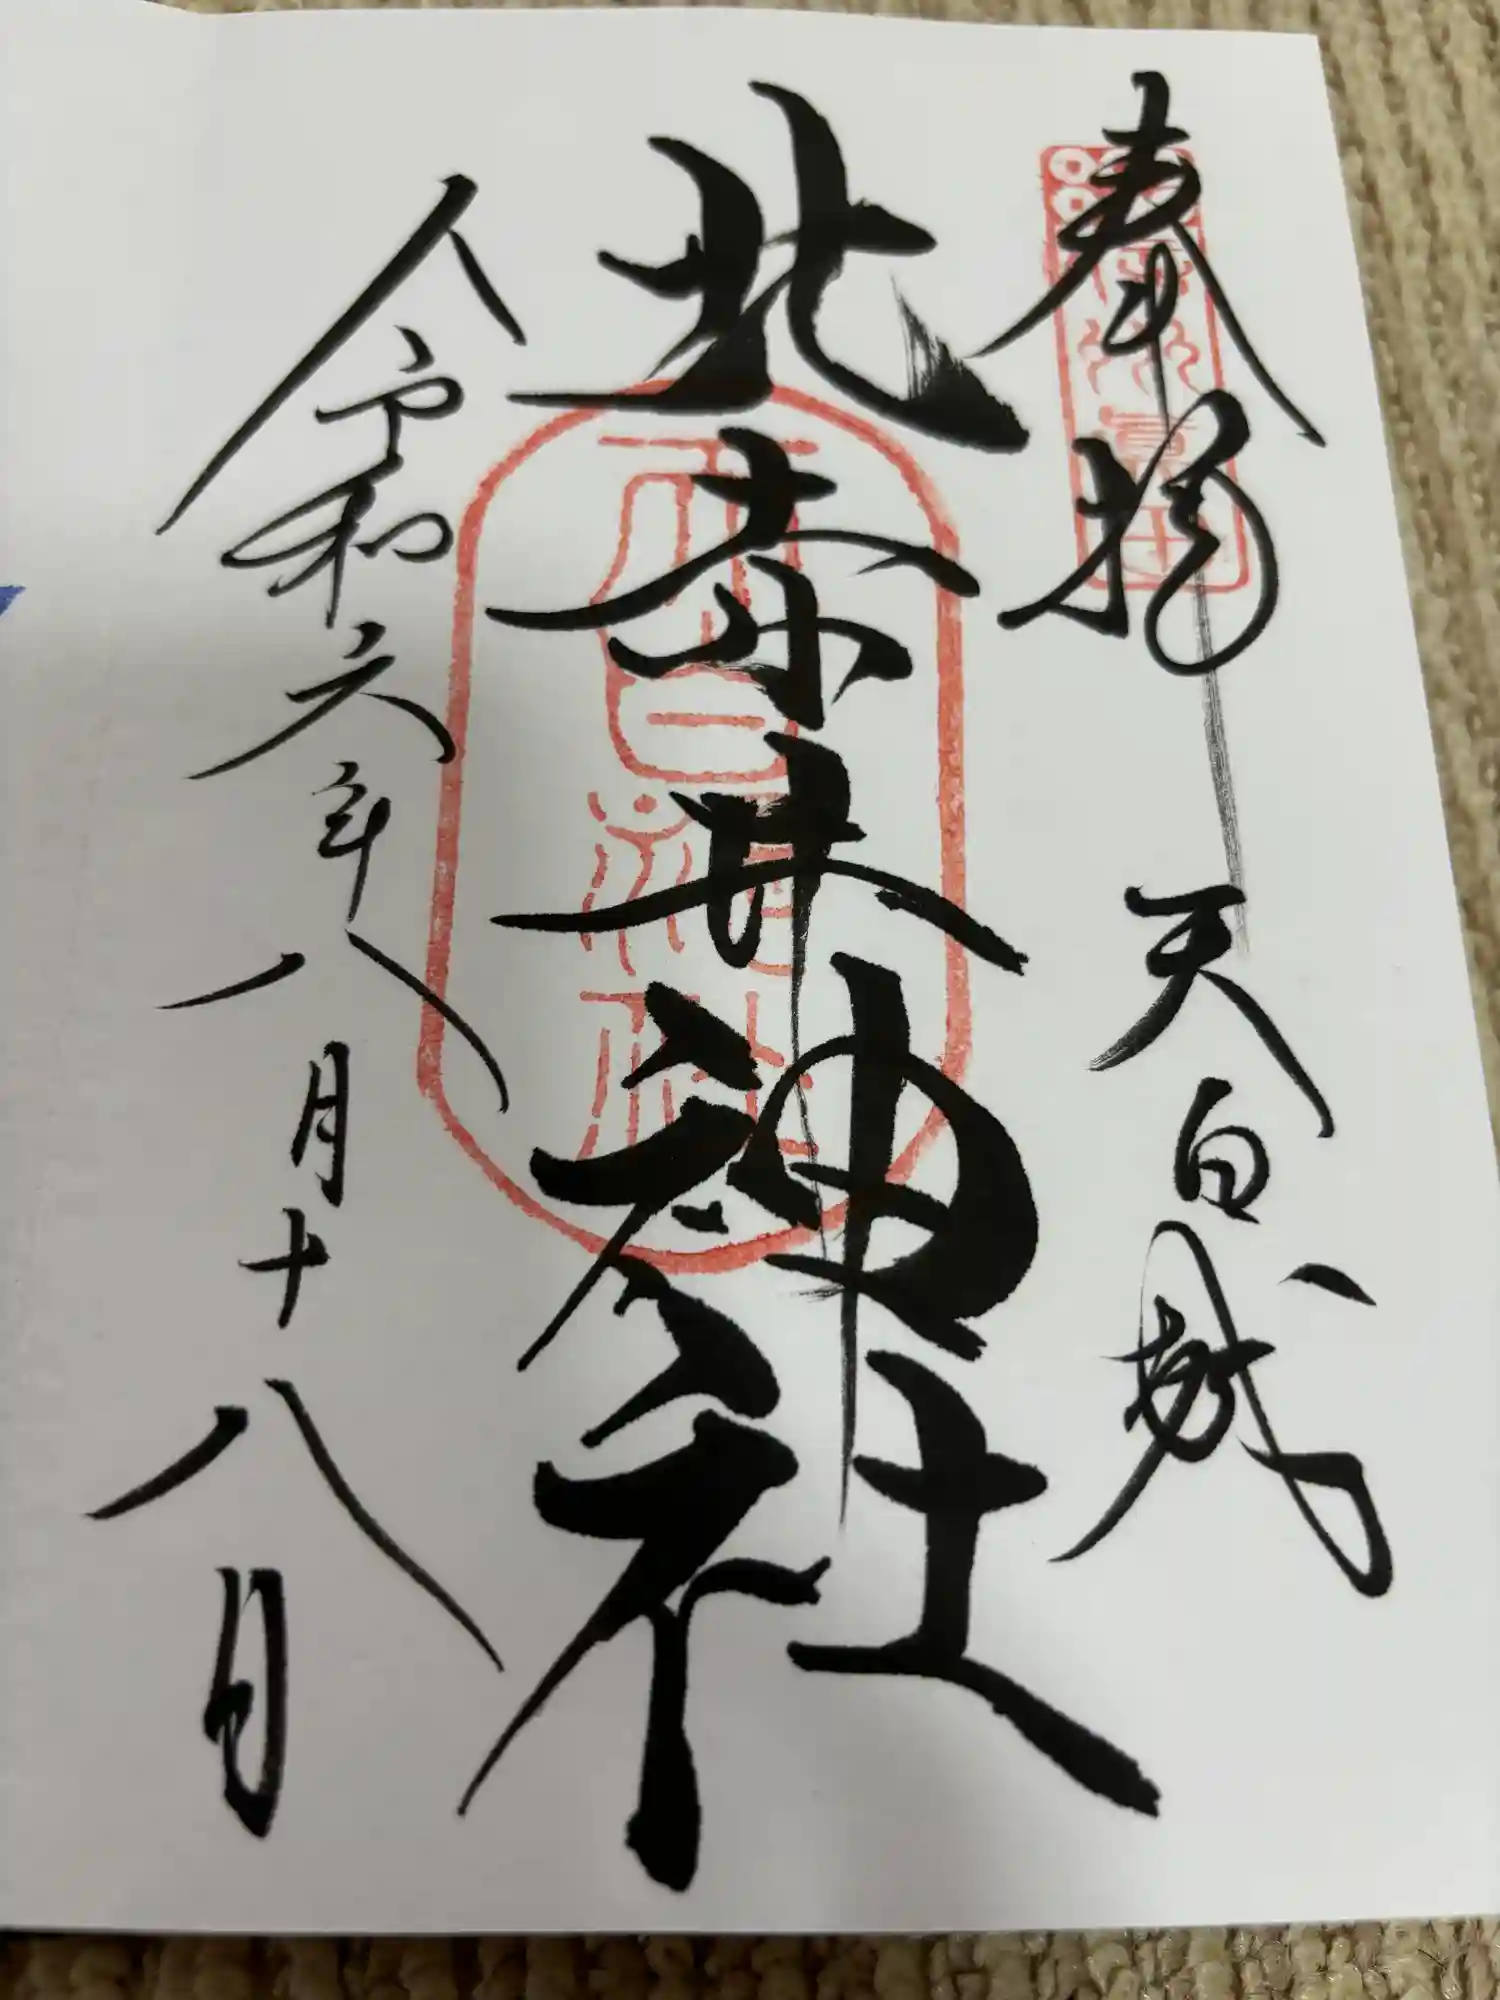 奉拝　天白城
北赤井神社
令和六年八月十八日